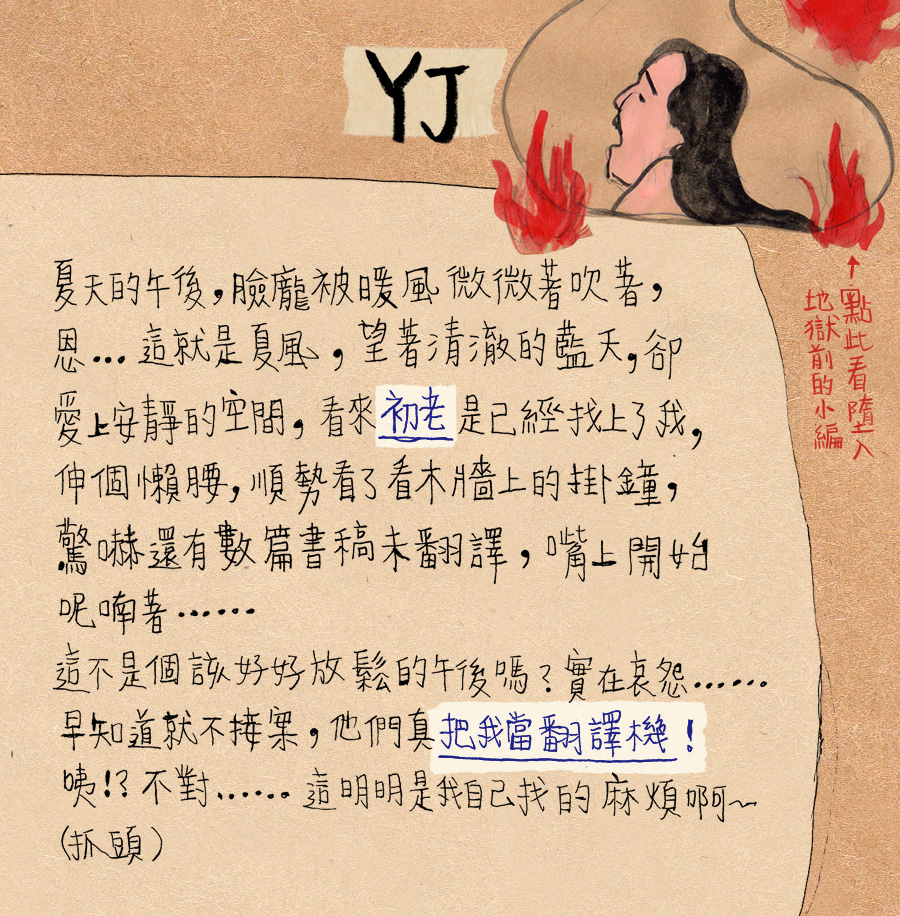 YJ
夏天的午後,臉龐被暖風微微著吹著,
恩...這就是夏風,望著清澈的藍天,卻
愛上安靜的空間,看來初老是已經找上了我,
伸個懶腰,順勢看了看木牆上的掛鐘,
驚嚇還有數篇書稿未翻譯,嘴上開始
呢喃著......
這不是個該好好放鬆的午後嗎?實在哀怨......
早知道就不接案,他們真把我當翻譯機!
咦!?不對......這明明是我自己找的麻煩啊~
(抓頭)
↑點此看墮入
地獄前的小編